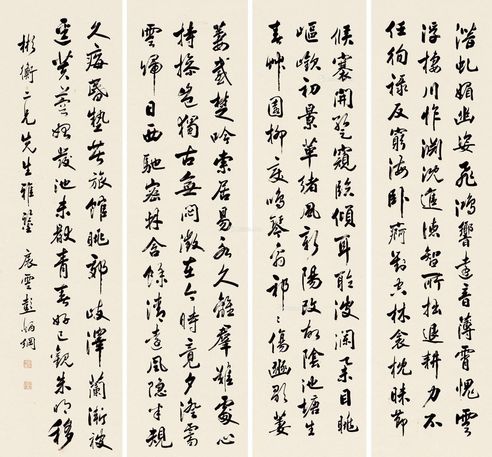 潛虬媚幽姿飛鴻響遠音薄霄愧雲
浮棲川怍淵沈進德智所拙退耕力不
任徇祿反窮海卧痾對空林衾枕昧節
候褰開暫窺臨傾耳聆波瀾舉目眺
嶇嶔初景革緒風新陽改故陰池塘生
春艸園柳變鳴琴禽祁〻傷豳歌萋
萋感楚吟索居易永久離羣難處心
持操豈獨古無悶徵在今時竟夕澄霽
雲歸日西馳密林含餘清遠風隱半規
久痗昏墊苦旅館眺郊岐澤蘭漸被
逕芙蓉始發池未厭青春好已觀朱明移
彬衡二兄先生雅鑒 雲彭炳綱